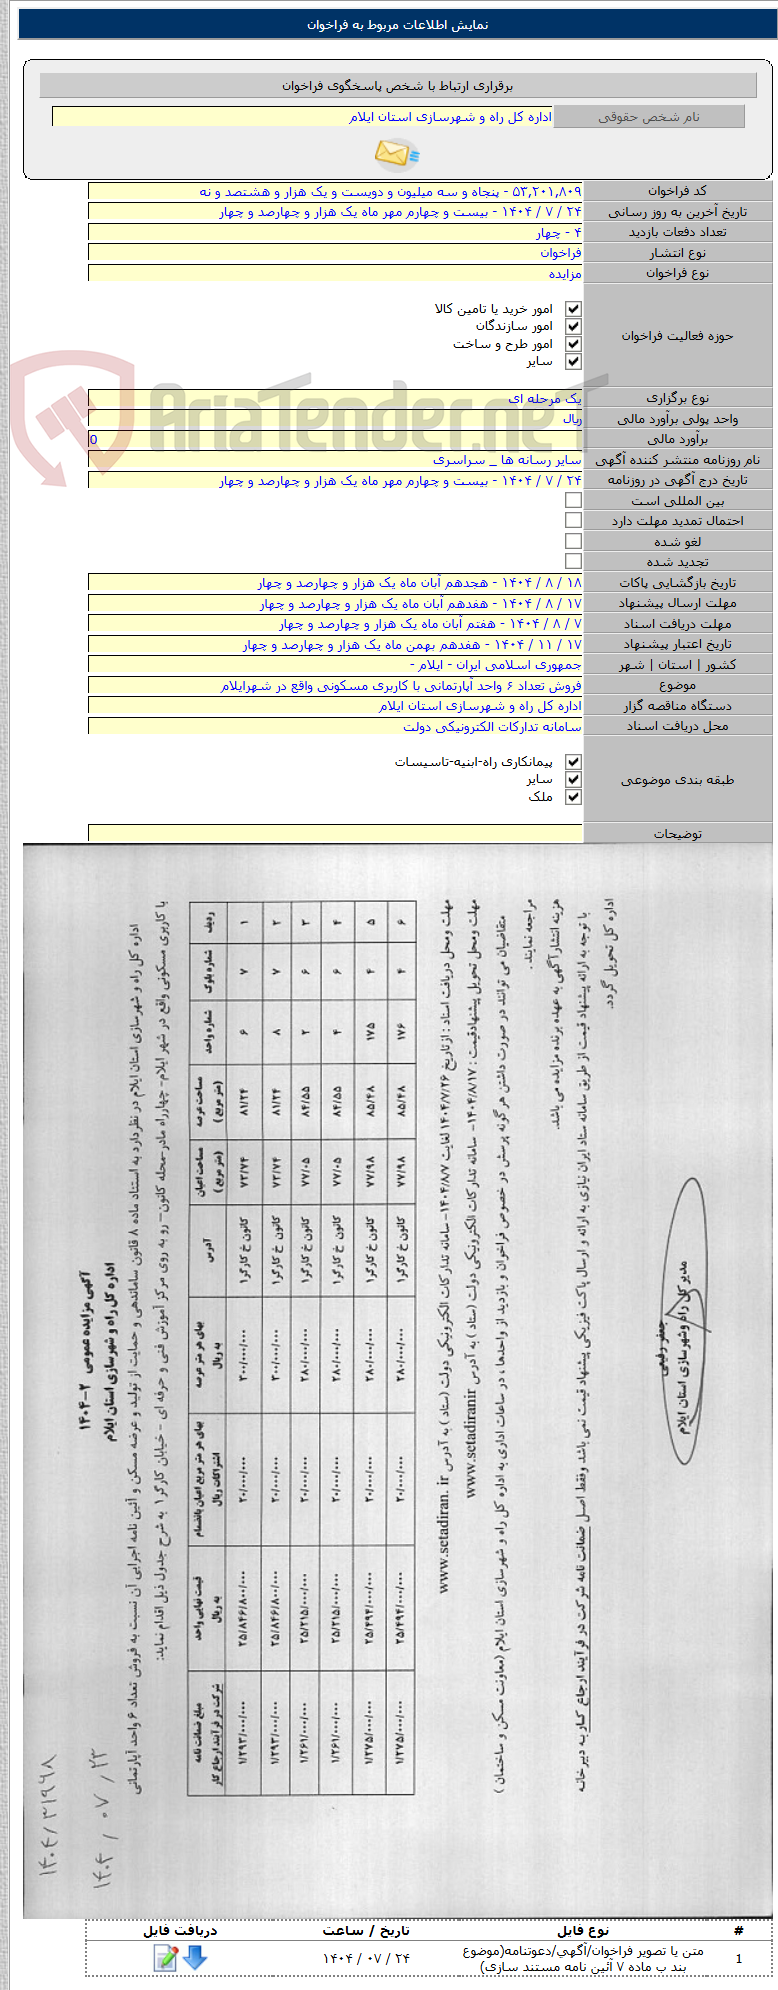 نمایش اطلاعات مربوط به فراخوان
برقراری ارتباط با شخص پاسخگوی فراخوان
نام شخص حقوقی اداره کل راه و شهرسازی استان ایلام
کد فراخوان ۵۳,۲۰۱,۸۰۹ - پنجاه و سه میلیون و دویست و یک هزار و هشتصد و نه
تاریخ آخرین به روز رسانی ۲۴ / ۷ / ۱۴۰۴ - بیست و چهارم مهر ماه یک هزار و چهارصد و چهار
تعداد دفعات بازدید ۴ - چهار
نوع انتشار فراخوان
نوع فراخوان مزایده
حوزه فعالیت فراخوان
امور خرید یا تامین کالا
امور سازندگان
امور طرح و ساخت
سایر
AriaTender.neT
نوع برگزاری یک مرحله ای
واحد پولی برآورد مالی ریال
برآورد مالی 0
نام روزنامه منتشر کننده آگهی سایر رسانه ها _ سراسری
تاریخ درج آگهی در روزنامه ۲۴ / ۷ / ۱۴۰۴ - بیست و چهارم مهر ماه یک هزار و چهارصد و چهار
بین المللی است
احتمال تمدید مهلت دارد
لغو شده
تجدید شده
تاریخ بازگشایی پاکات ۱۸ / ۸ / ۱۴۰۴ - هجدهم آبان ماه یک هزار و چهارصد و چهار
مهلت ارسال پیشنهاد ۱۷ / ۸ / ۱۴۰۴ - هفدهم آبان ماه یک هزار و چهارصد و چهار
مهلت دریافت اسناد ۷ / ۸ / ۱۴۰۴ - هفتم آبان ماه یک هزار و چهارصد و چهار
تاریخ اعتبار پیشنهاد ۱۷ / ۱۱ / ۱۴۰۴ - هفدهم بهمن ماه یک هزار و چهارصد و چهار
کشور | استان | شهر جمهوری اسلامی ایران - ایلام -
موضوع فروش تعداد ۶ واحد آپارتمانی با کاربری مسکونی واقع در شهرایلام
دستگاه مناقصه گزار اداره کل راه و شهرسازی استان ایلام
محل دریافت اسناد سامانه تدارکات الکترونیکی دولت
طبقه بندی موضوعی
پیمانکاری راه-ابنیه-تاسیسات
سایر
ملک
توضیحات
۱۴۰۴/۳۱۹۶۸
۱۴۰۴ / ۰۷ / ۲۳
آگهی مزایده عمومی ۲-۱۴۰۴
اداره کل راه و شهرسازی استان ایلام
اداره کل راه و شهرسازی استان ایلام در نظر دارد به استناد ماده ۸ قانون ساماندهی و حمایت از تولید و عرضه مسکن و آئین نامه اجرایی آن نسبت به فروش تعداد ۶ واحد آپارتمانی
با کاربری مسکونی واقع در شهر ایلام- چهارراه مادر-محله کانون- رو به روی مرکز آموزش فنی و حرفه ای - خیابان کارگر ۱ به شرح جدول ذیل اقدام نماید:
ردیف شماره بلوک شماره واحد مساحت عرصه (متر مربع) مساحت اعیان (متر مربع) آدرس بهای هر متر عرصه به ریال بهای هر متر مربع اعیان بانضمام اشتراکات ریال قیمت نهایی واحد به ریال مبلغ ضمانت نامه شرکت در فرآیند ارجاع کار
۱ ۷ ۶ ۸۱/۲۴ ۷۳/۷۴ کانون خ کارگر۱ ۳۰۰/۰۰۰/۰۰۰ ۲۰/۰۰۰/۰۰۰ ۲۵/۸۴۶/۸۰۰/۰۰۰ ۱/۲۹۳/۰۰۰/۰۰۰
۲ ۷ ۸ ۸۱/۲۴ ۷۳/۷۴ کانون خ کارگر۱ ۳۰۰/۰۰۰/۰۰۰ ۲۰/۰۰۰/۰۰۰ ۲۵/۸۴۶/۸۰۰/۰۰۰ ۱/۲۹۳/۰۰۰/۰۰۰
۳ ۶ ۲ ۸۴/۵۵ ۷۷/۰۵ کانون خ کارگر۱ ۲۸۰/۰۰۰/۰۰۰ ۲۰/۰۰۰/۰۰۰ ۲۵/۲۱۵/۰۰۰/۰۰۰ ۱/۲۶۱/۰۰۰/۰۰۰
۴ ۶ ۴ ۸۴/۵۵ ۷۷/۰۵ کانون خ کارگر۱ ۲۸۰/۰۰۰/۰۰۰ ۲۰/۰۰۰/۰۰۰ ۲۵/۲۱۵/۰۰۰/۰۰۰ ۱/۲۶۱/۰۰۰/۰۰۰
۵ ۴ ۱۷۵ ۸۵/۴۸ ۷۷/۹۸ کانون خ کارگر۱ ۲۸۰/۰۰۰/۰۰۰ ۲۰/۰۰۰/۰۰۰ ۲۵/۴۹۴/۰۰۰/۰۰۰ ۱/۲۷۵/۰۰۰/۰۰۰
۶ ۴ ۱۷۶ ۸۵/۴۸ ۷۷/۹۸ کانون خ کارگر۱ ۲۸۰/۰۰۰/۰۰۰ ۲۰/۰۰۰/۰۰۰ ۲۵/۴۹۴/۰۰۰/۰۰۰ ۱/۲۷۵/۰۰۰/۰۰۰
مهلت ومحل دریافت اسناد : از تاریخ ۱۴۰۴/۷/۲۶ لغایت ۱۴۰۴/۸/۷ -سامانه تدارکات الکترونیکی دولت (ستاد ) به آدرس www.setadiran. ir
مهلت ومحل تحویل پیشنهادقیمت : ۱۴۰۴/۸/۱۷- سامانه تدارکات الکترونیکی دولت (ستاد ) به آدرس www.setadiranir
متقاضیان می توانند در صورت داشتن هر گونه پرسش در خصوص فراخوان و بازدید از واحدها ، در ساعات اداری به اداره کل راه و شهرسازی استان ایلام (معاونت مسکن و ساختمان )
مراجعه نمایند .
هزینه انتشار آگهی به عهده برنده مزایده می باشد.
با توجه به ارائه پیشنهاد قیمت از طریق سامانه ستاد ایران نیازی به ارائه و ارسال پاکت فیزیکی پیشنهاد قیمت نمی باشد وفقط اصل ضمانت نامه شرکت در فرآیند ارجاع کار به دبیرخانه
اداره کل تحویل گردد.
جعفر رفیعی
مدیر کل راه وشهرسازی استان ایلام
# نوع فایل تاریخ / ساعت دریافت فایل
1 متن یا تصویر فراخوان/آگهی/دعوتنامه(موضوع بند ب ماده ۷ آئین نامه مستند سازی) ۲۴ / ۰۷ / ۱۴۰۴